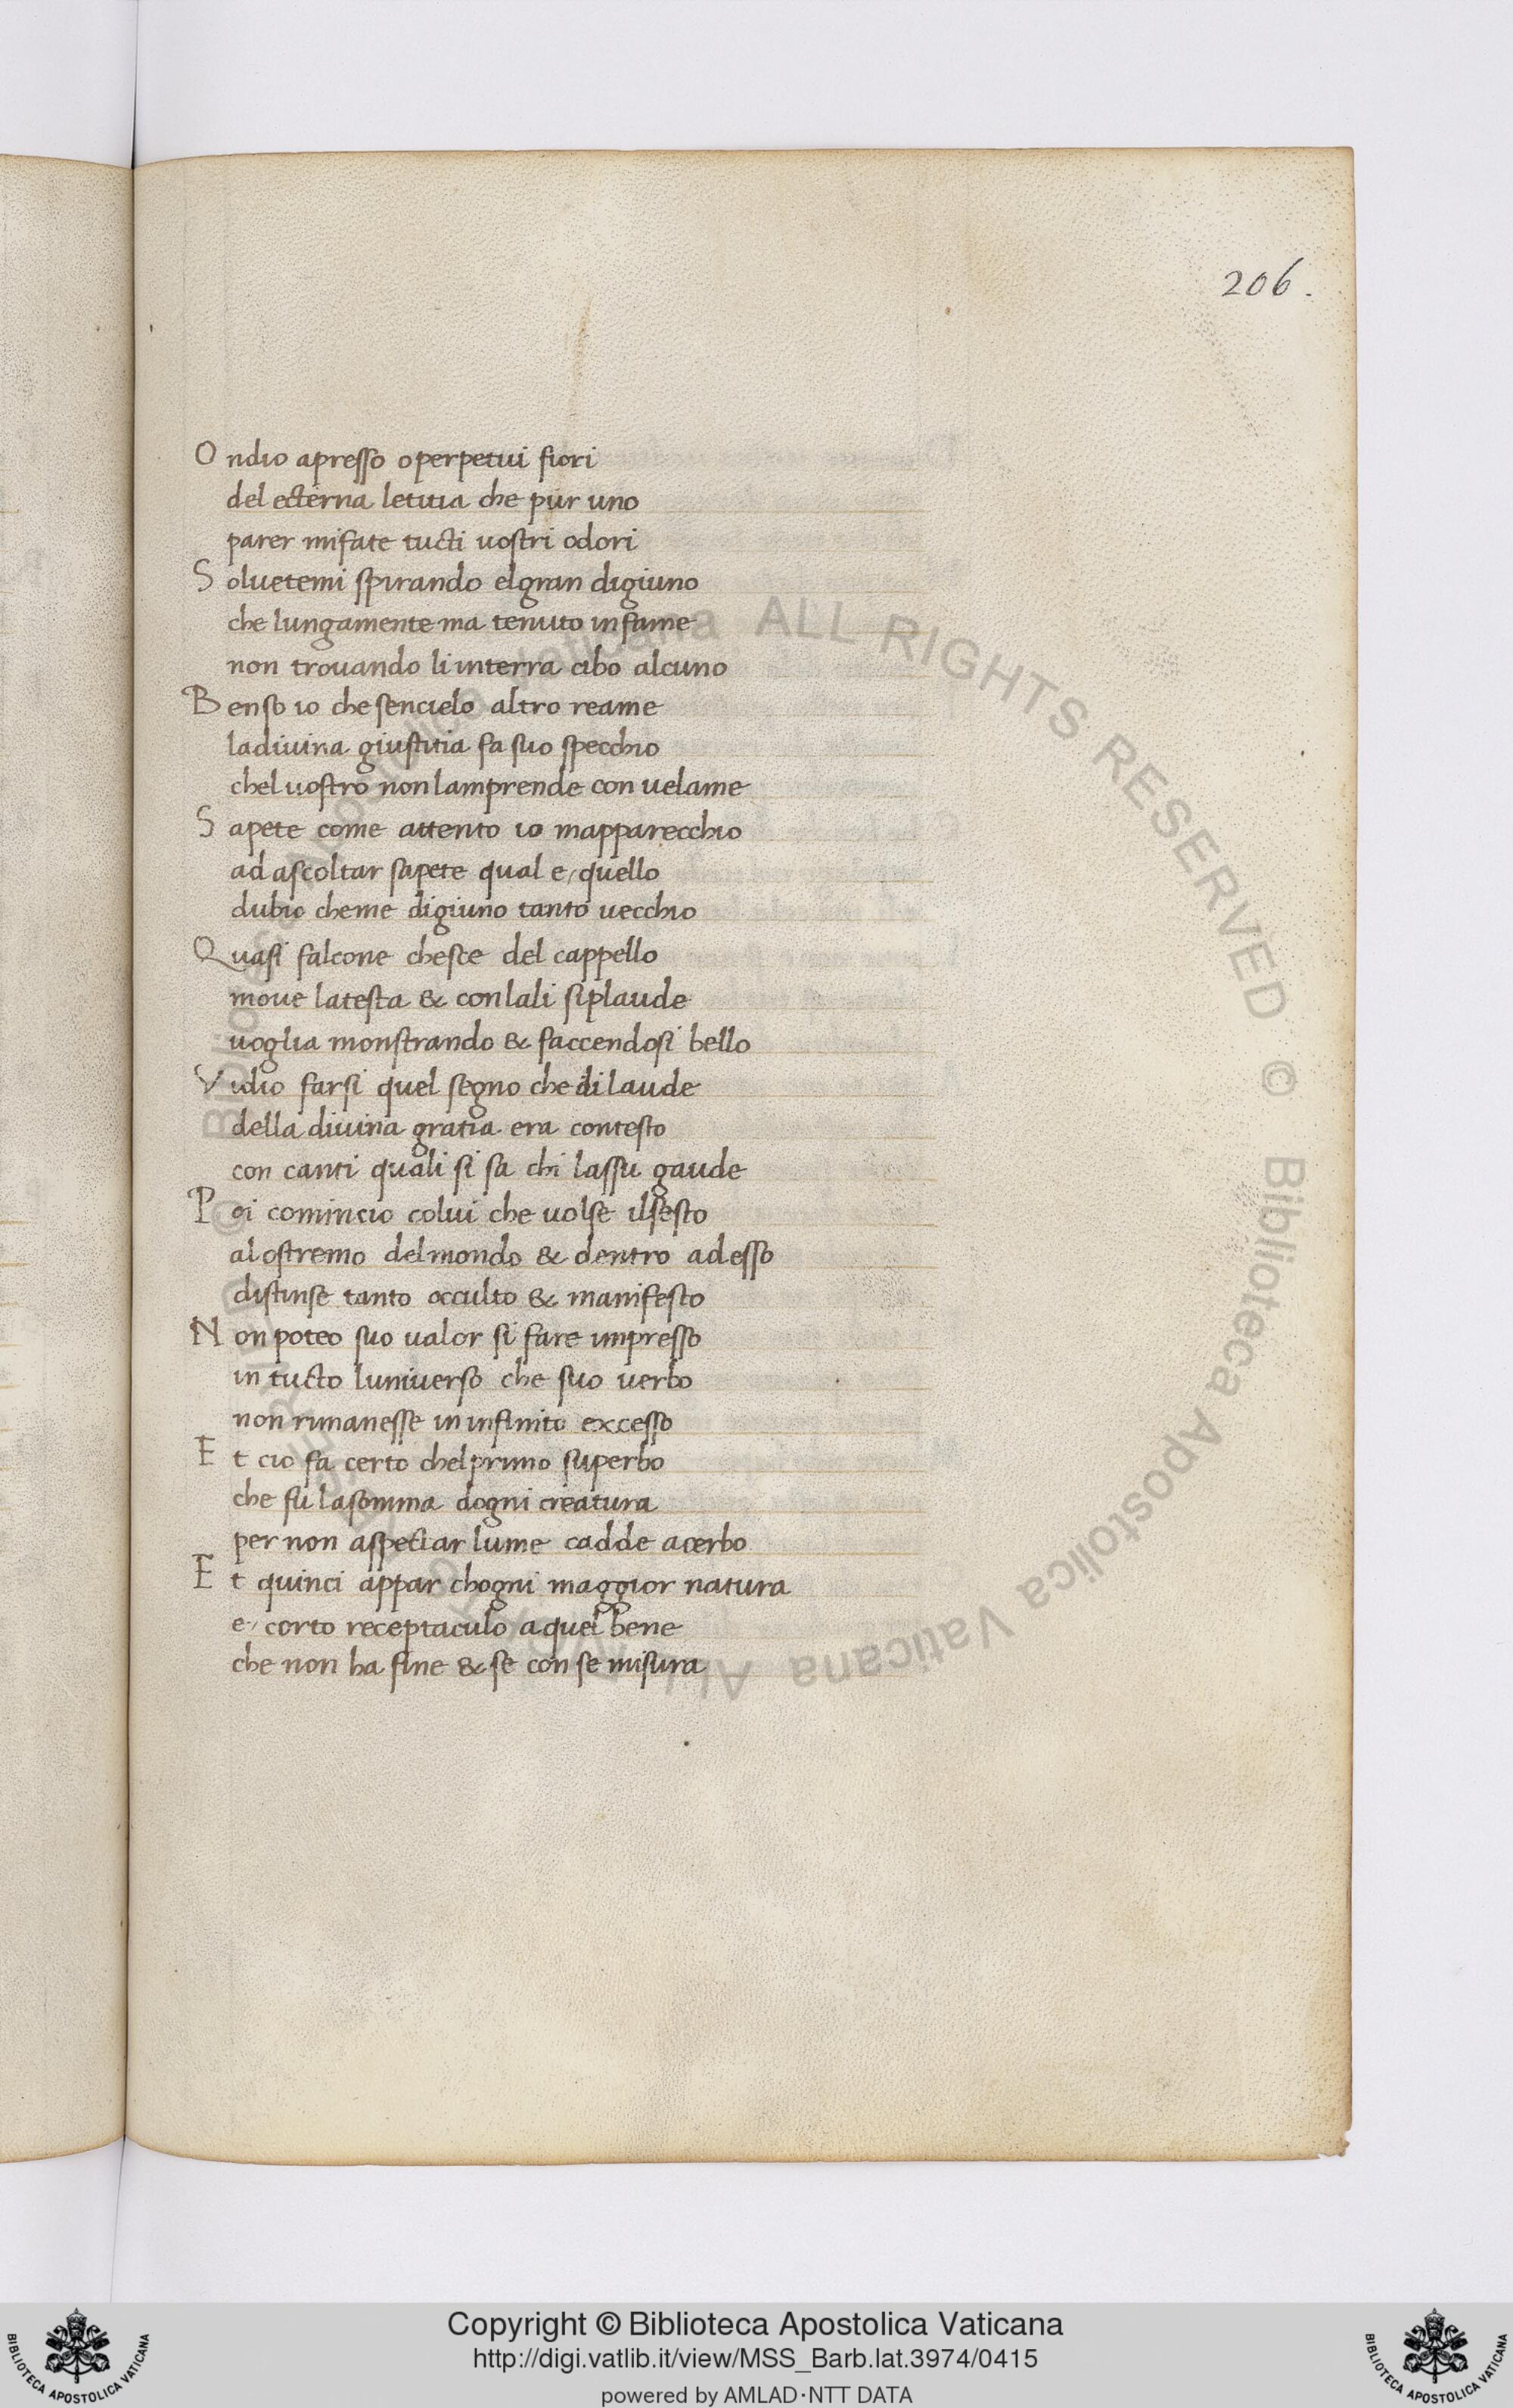 206.
Ondio apresso o perpetui fiori
del ecterna letitia che pur uno
parer mi fate tucti uostri odori
Soluetemi spirando el gran digiuno
che lungamente ma tenuto in fame
non trouando li in terra cibo alcuno
Ben so io che sen cielo altro reame
la diuina giustitia fa suo specchio
chel uostro non lamprende con uelame
Sapete come attento io mapparecchio
ad ascoltar sapete qual e quello
dubio che me digiuno tanto uecchio
Quasi falcone chesce del cappello
moue la testa & con lali si plaude
uoglia monstrando & faccendosi bello
Vidio farsi quel segno che di laude
della diuina gratia era contesto
con canti quali si sa chi lassu gaude
Poi comincio colui che uolse il sesto
al ostremo del mondo & dentro ad esso
distinse tanto occulto & manifesto
Non poteo suo ualor si fare impresso
in tucto luniuerso che suo uerbo
non rimanesse in infinito excesso
Et cio fa certo chel primo superbo
che fu la somma dogni creatura
per non aspectar lume cadde acerbo
Et quinci appar chogni maggior natura
e corto receptaculo a quel bene
che non ha fine & se con se misura
Copyright © Biblioteca Apostolica Vaticana
http://digi.vatlib.it/view/MSS_Barb.lat.3974/0415
powered by AMLAD·NTT DATA